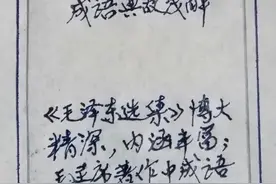 成语典故浅解
《毛泽东选集》博大
精深，内涵丰富；
毛主席著作中成语